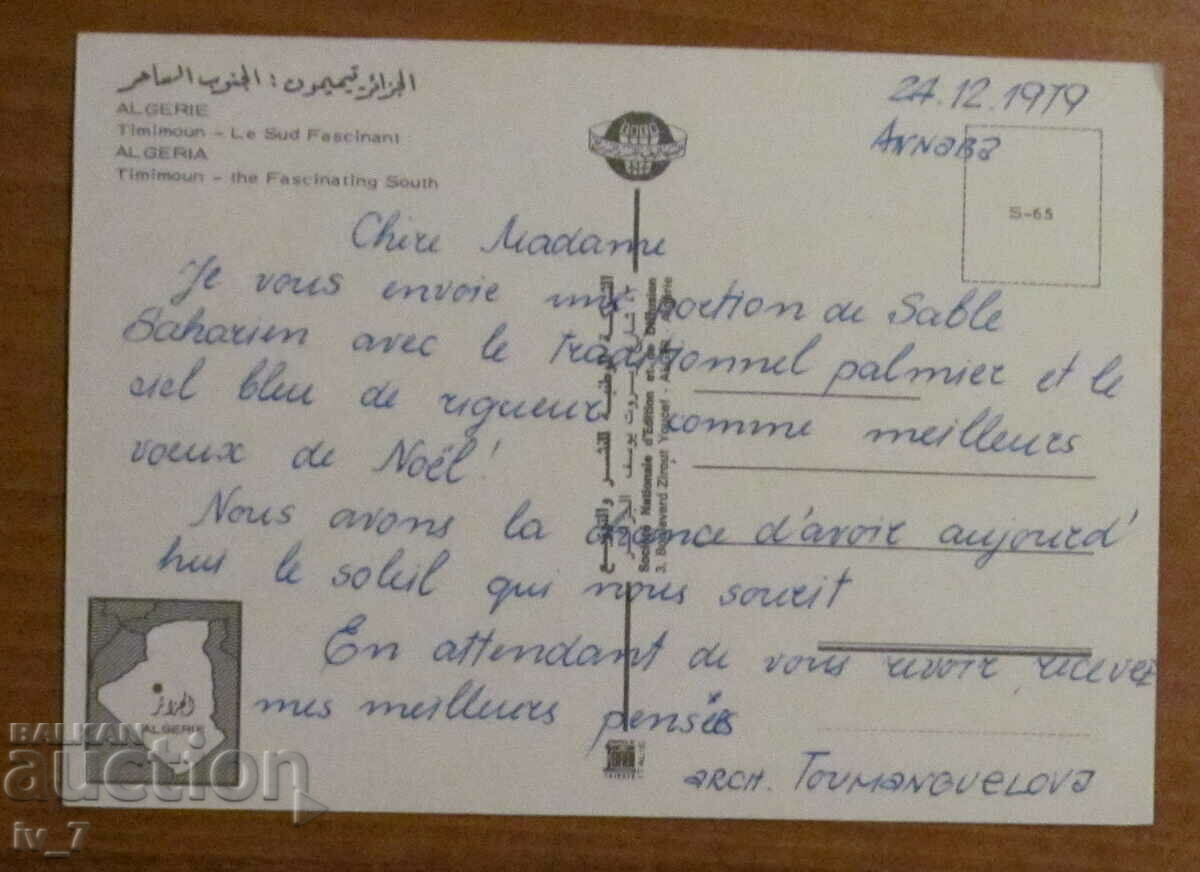 الجزائر تيميمون : الجنوب الساحر
ALGERIE
Timimoun - Le Sud Fascinant
ALGERIA
Timimoun - the Fascinating South
24.12.1979
Annaba
S-65
Chère Madame
Je vous envoie une portion de Sable
Saharien avec le traditionnel palmier et le
ciel bleu de rigueur comme meilleurs
voeux de Noël!
Nous avons la chance d'avoir aujourd'
hui le soleil qui nous sourit
En attendant de vous revoir, recevez
mes meilleurs pensées
arch. Toumanguelova
Société Nationale d'Edition et de Diffusion
3, Boulevard Zirout Youcef - Algérie
الجزائر
ALGERIE
BALKAN
auction
iv_7